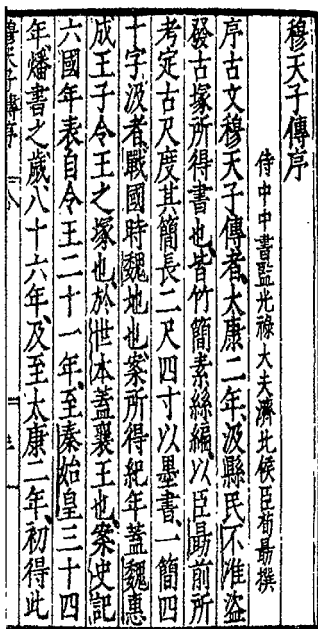 穆天子傳序
侍中中書監光祿大夫濟北侯臣荀勗撰
序古文穆天子傳者太康二年汲縣民不準盜
發古塚所得書也皆竹簡素絲編以臣勗前所
考定古尺度其簡長二尺四寸以墨書一簡四
十字汲者戰國時魏地也案所得紀年蓋魏惠
成王子令王之塚也於世本蓋襄王也案史記
六國年表自令王二十一年至秦始皇三十四
年燔書之歲八十六年及至太康二年初得此
穆天子傳序